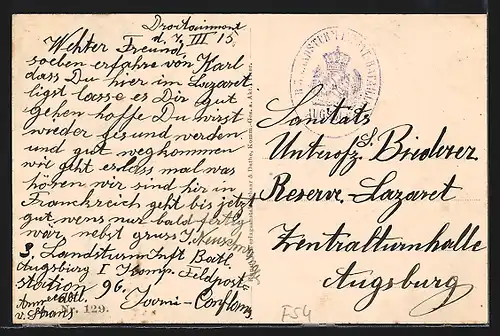 Droitaumont
d. 7. III 15.
Wehter Freund,
soeben erfahre von Karl
dass Du hier im Lazaret
ligst lasse es Dir gut
gehen hoffe Du wirst
wieder gesund werden
und gut weghommen
wir geht es lass mal was
hören wir sind hir in
Franckreich geht bis jetzt
gut, wens nur bald fertig
wär, nebst gruss J.
3. Landsturm Inft Batl.
Augsburg I Komp. Feldpost-
station 96.
Armeeabtl. Joerni-Conflans
v. Strans
Nr. 129.
Sanitäts
Unterofz. S. Biederer
Reserve-Lazaret
Zentralturnhalle
Augsburg
F54